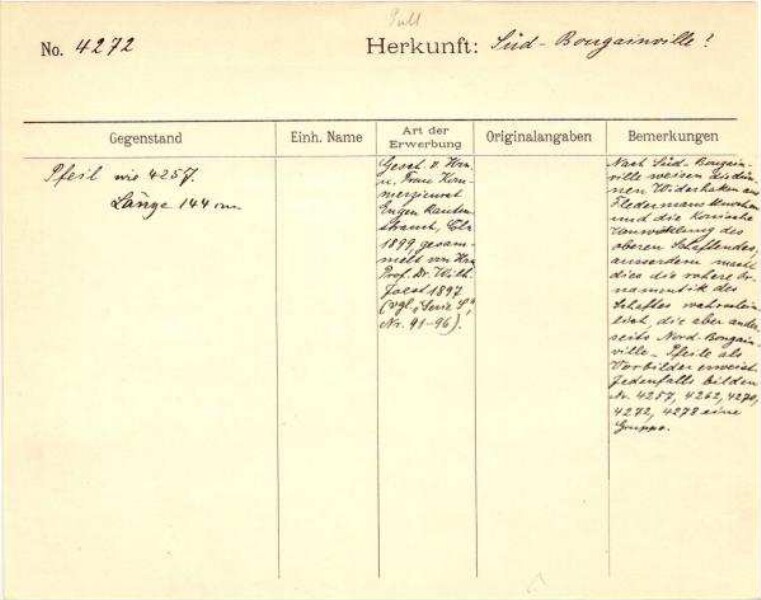 No. 4272
Herkunft: Süd-Bougainville!
Gegenstand
Einh. Name
Art der Erwerbung
Originalangaben
Bemerkungen
Pfeil wie 4257.
Länge 144 cm
Gesch. v. Hrn.
u. Frau Kom-
merzienrat
Eugen Rauten-
strauch, Cöln
1899, gesam-
melt von Hrn
Prof. Dr. Wilh.
Joest 1897
(vgl. „Serie S",
Nr. 91-96).
Nach Süd-Bougain-
ville weisen die dün-
nen Widerhaken aus
Fledermausknochen
und die konische
Umwicklung des
oberen Schaftendes,
ausserdem macht
dies die rohere Or-
namentik des
Schaftes wahrschein-
lich, die aber ander-
seits Nord-Bougain-
ville-Pfeile als
Vorbilder erweist.
Jedenfalls bilden
Nr. 4257, 4262, 4270,
4272, 4278 eine
Gruppe.